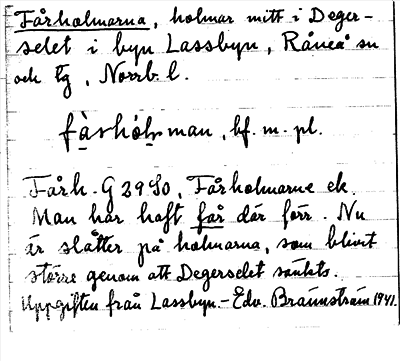 Fårholmarna, holmar mitt i Deger-
selet i byn Lassbyn, Råneå sn
och tg, Norrb. l.
fårhólmman, bf. m. pl.
Fårh. G 29 SO, Fårholmarne ek.
Man har haft får där förr. Nu
är slåtter på holmarna, som blivit
större genom att Degerselet sänkts.
Uppgiften från Lassbyn. - Edv. Brännström 1941.